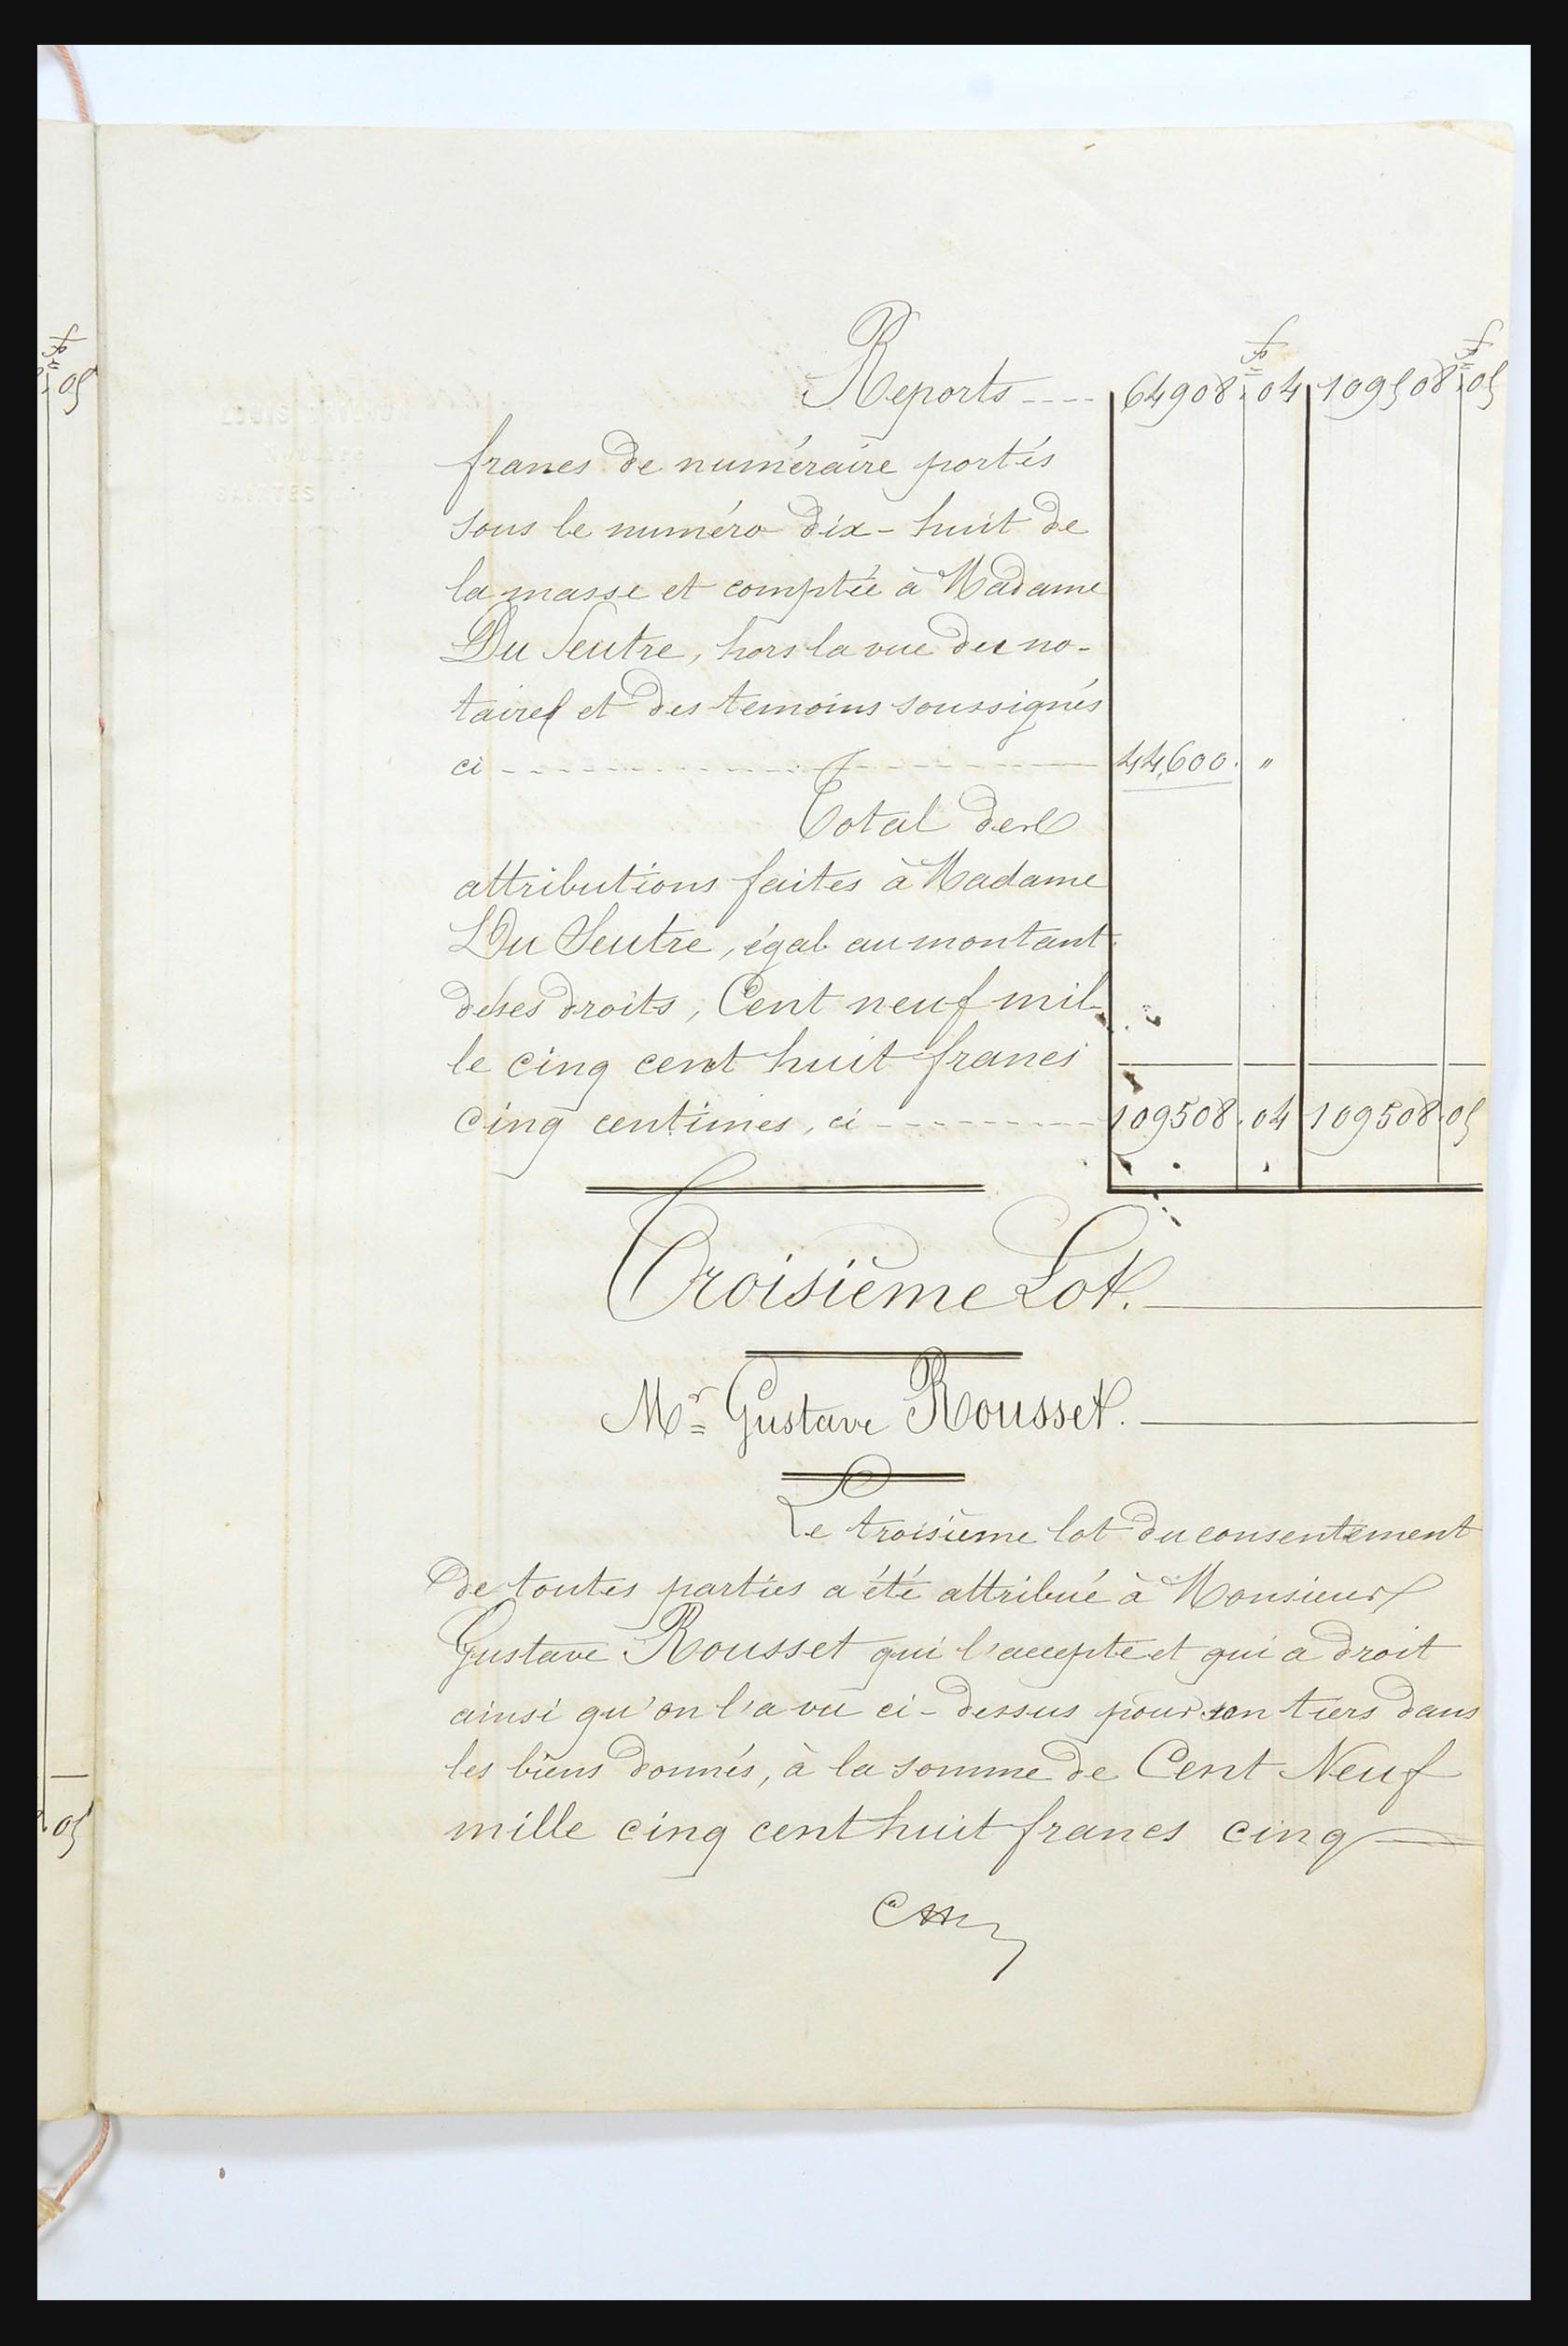 Reports ---- 64908. 04 109508. 05
francs de numéraire portés
sous le numéro dix-huit de
la masse et comptée à Madame
Du Seutre, hors la vue du no-
taire et des temoins soussignés
ci ---------- 44,600. "
Total des
attributions faites à Madame
Du Seutre, égal au montant
de ses droits, Cent neuf mil-
le cinq cent huit francs
cinq centimes, ci ---------- 109508. 04 109508. 05
Troisième Lot.
Mr Gustave Rousset.
Le troisième lot du consentement
de toutes parties a été attribué à Monsieur
Gustave Rousset qui l'accepte et qui a droit
ainsi qu'on l'a vu ci-dessus pour son tiers dans
les biens donnés, à la somme de Cent Neuf
mille cinq cent huit francs cinq